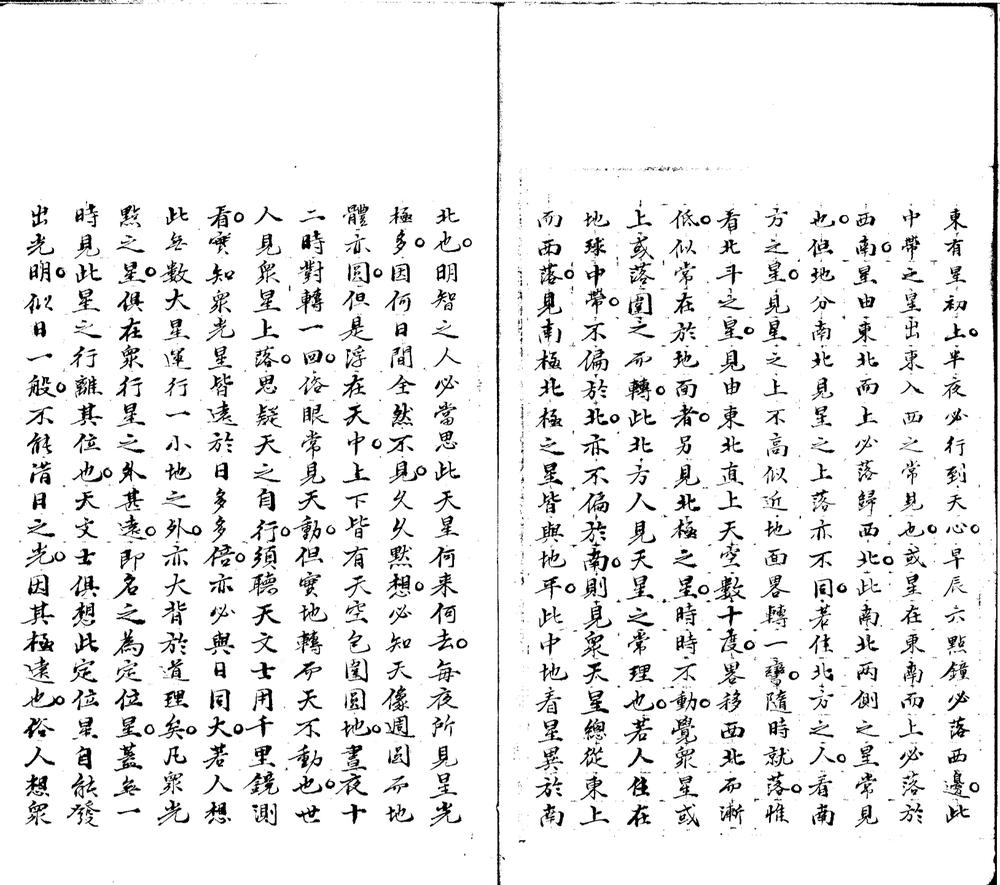 東有星初上。半夜必行到天心。早辰六點鐘必落西邊。此
中帶之星出東入西之常見也。或星在東南而上必落於
西南。星由東北而上必落歸西北。此南北兩側之星常見
也。但地分南北見星之上落亦不同。若住北方之人。看南
方之星。見星之上不高似近地面畧轉一彎隨時就落。惟
看北斗之星。見由東北直上天空數十度。畧移西北而漸
低。似常在於地面者。另見北極之星。時時不動。覺衆星或
上或落圍之而轉。此北方人見天星之常理也。若人住在
地球中帶。不偏於北。亦不偏於南。則見衆天星總從東上
而西落。見南極北極之星皆與地平。此中地看星異於南
北也。明智之人必當思此天星何来何去。每夜所見星光
極多。因何日間全然不見。久久默想。必知天像週圓而地
體亦圓。但是浮在天中。上下皆有天空包圍圓地。晝夜十
二時對轉一回。俗眼常見天動。但實地轉而天不動也。世
人見衆星上落。思疑天之自行。須聽天文士用千里鏡測
看。實知衆光星皆遠於日多多倍。亦必與日同大。若人想
此無數大星運行一小地之外。亦大背於道理矣。凡衆光
點之星。俱在衆行星之外甚遠。即名之為定位星。蓋無一
時見此星之行離其位也。天文士俱想此定位星自能發
出光明。似日一般。不能借日之光。因其極遠也。俗人想衆